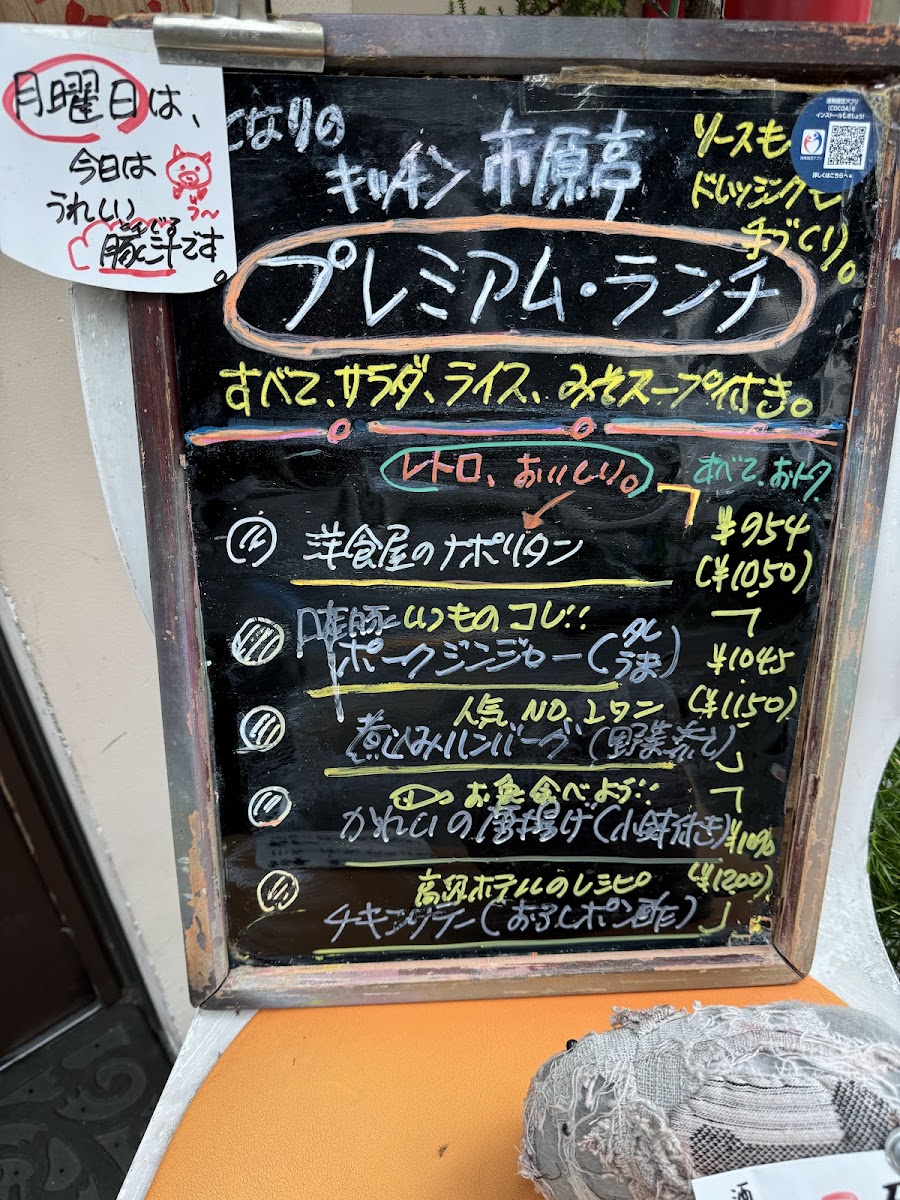 月曜日は、
今日は
うれしい
豚汁です。
となりの
キッチン 市原亭
ソースも
ドレッシングも
手づくり。
プレミアム・ランチ
すべて、サラダ、ライス、みそスープ付き。
レトロ、おいしい。
すべて、おトク
洋食屋のナポリタン
¥954
(¥1050)
いつものコレ!!
ポークジンジャー(
うま)
¥1045
(¥1150)
人気 NO.1ワン
煮込みハンバーグ(野菜煮も)
お魚食べよう!!
かれいの唐揚げ(小鉢付き)
高級ホテルのレシピ
(¥1200)
チキンソテー(おろしポン酢)
(COCOA)を
インストールしましょう!
詳しくはこちらへ